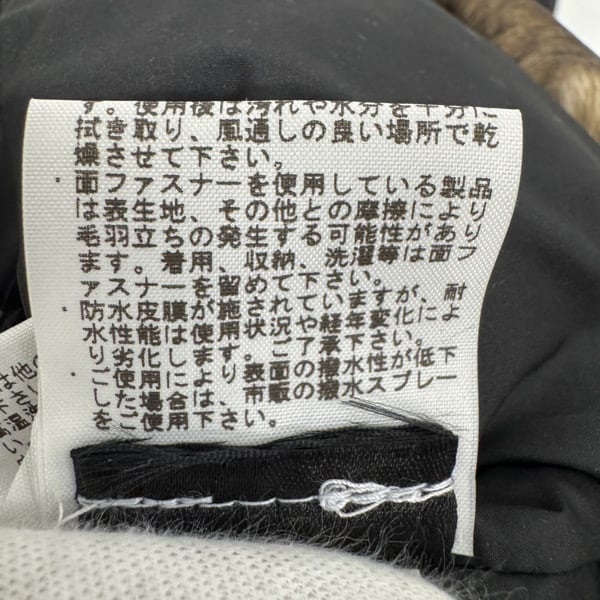 す。使用後は汚れや水分を十分に
拭き取り、風通しの良い場所で乾
燥させて下さい。
・面ファスナーを使用している製品
は表生地、その他との摩擦により
毛羽立ちの発生する可能性があり
ます。着用、収納、洗濯等は面フ
ァスナーを留めて下さい。
・防水皮膜が施されていますが、耐
水性能は使用状況や経年変化によ
り劣化します。ご了承下さい。
ご使用により、表面の撥水性が低下
した場合は、市販の撥水スプレー
をご使用下さい。